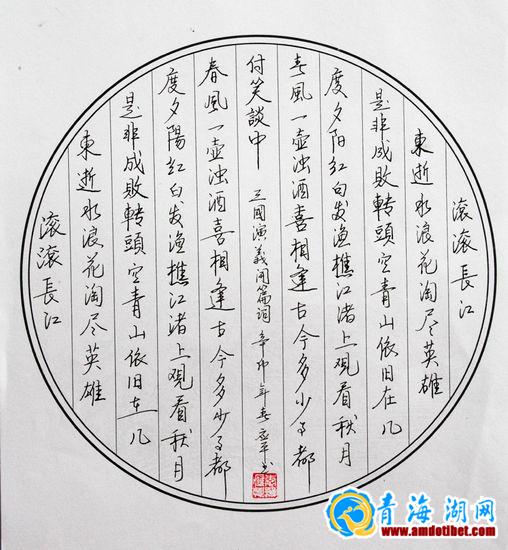 滚滚長江
東逝水浪花淘尽英雄
是非成敗转頭空青山依旧在几
度夕阳红白发渔樵江渚上观看秋月
春風一壶浊酒喜相逢古今多少事都
付笑談中
三國演義開篇词 辛卯年春 书
春風一壶浊酒喜相逢古今多少事都
度夕陽红白发渔樵江渚上观看秋月
是非成敗转頭空青山依旧在几
東逝水浪花淘尽英雄
滚滚長江
青海湖网
www.amdotibet.com